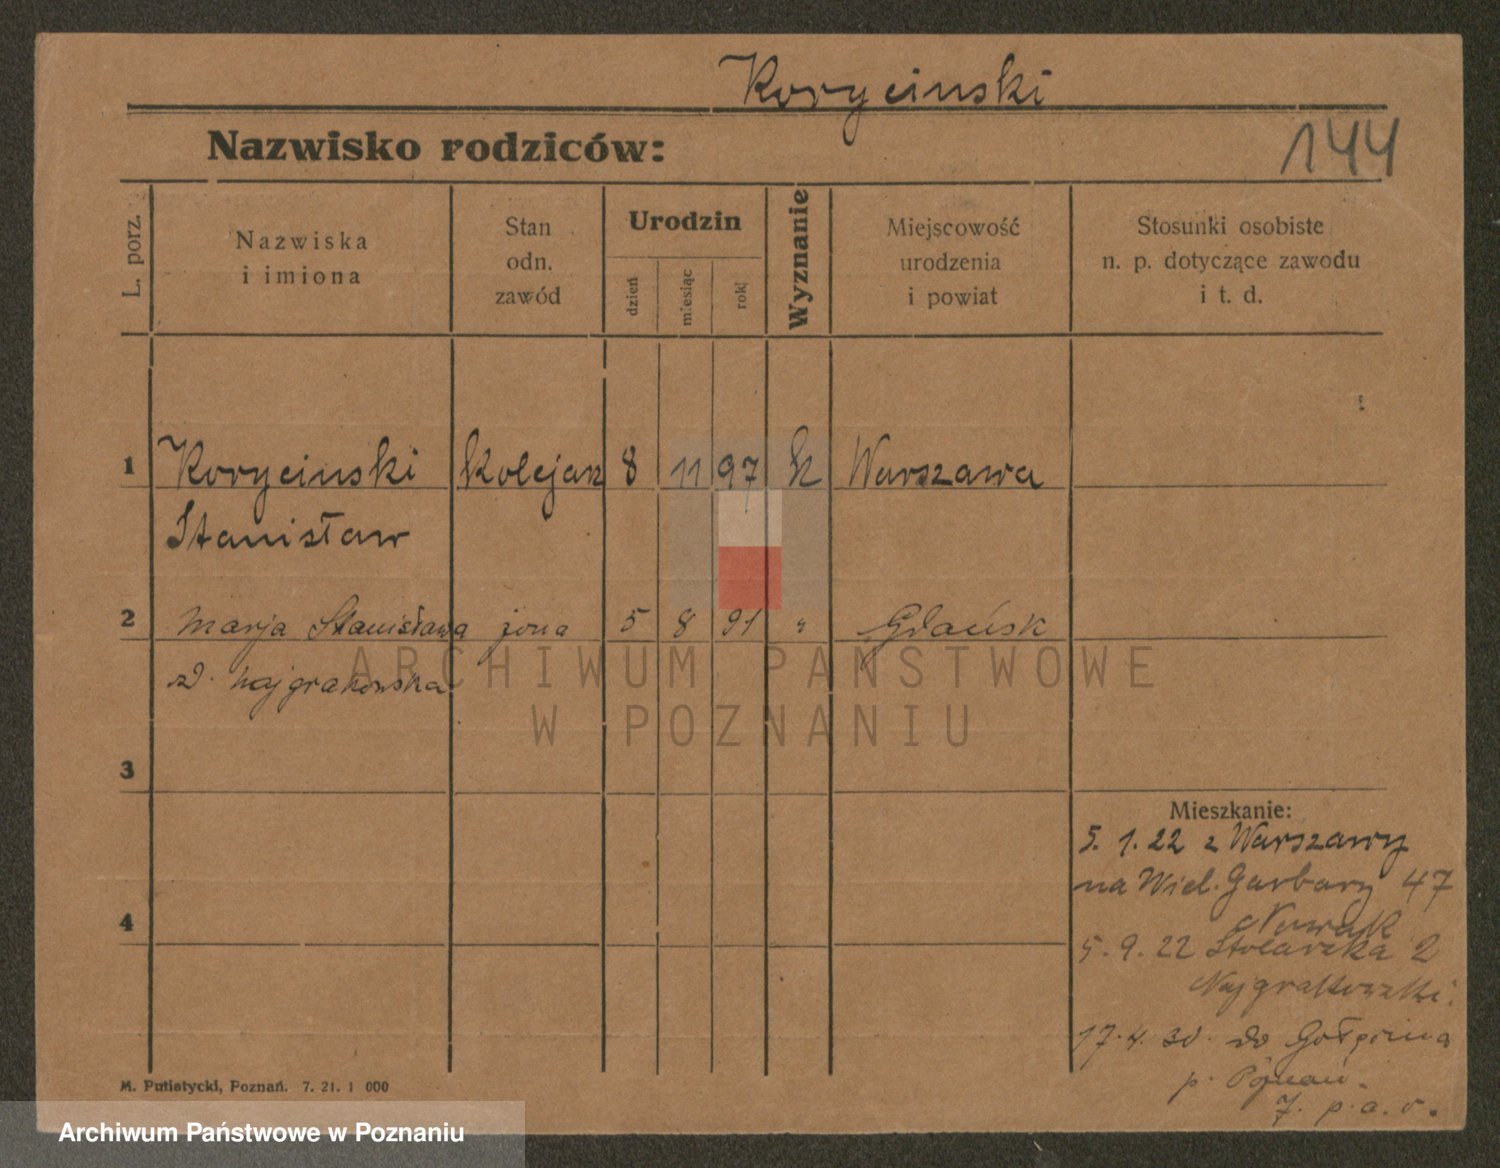 Korycinski
Nazwisko rodziców:
144
L. porz.
Nazwiska
i imiona
Stan
odn.
zawód
Urodzin
dzień
miesiąc
rok
Wyznanie
Miejscowość
urodzenia
i powiat
Stosunki osobiste
n. p. dotyczące zawodu
i t. d.
1 Korycinski Kolejarz 8 11 97 k Warszawa
Stanisław
2 Marja Stanisława żona 5 8 91 " Gdańsk
z d. Najgrakowska
ARCHIWUM PAŃSTWOWE
W POZNANIU
3
Mieszkanie:
5. 1. 22 z Warszawy
na Wiel. Garbary 47
Nowak
4
5. 9. 22 Stolarska 2
Najgrakowski.
17. 4. 30. do
p. Poznań.
7. p. a. v.
M. Putiatycki, Poznań. 7. 21. 1 000
Archiwum Państwowe w Poznaniu